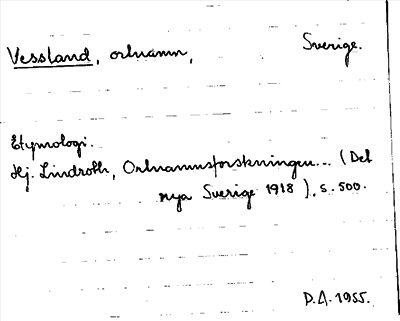 Vessland, ortnamn, Sverige.
Etymologi.
Hj. Lindroth, Ortnamnsforskningen... (Det
nya Sverige 1918), s. 500.
D.A. 1955.